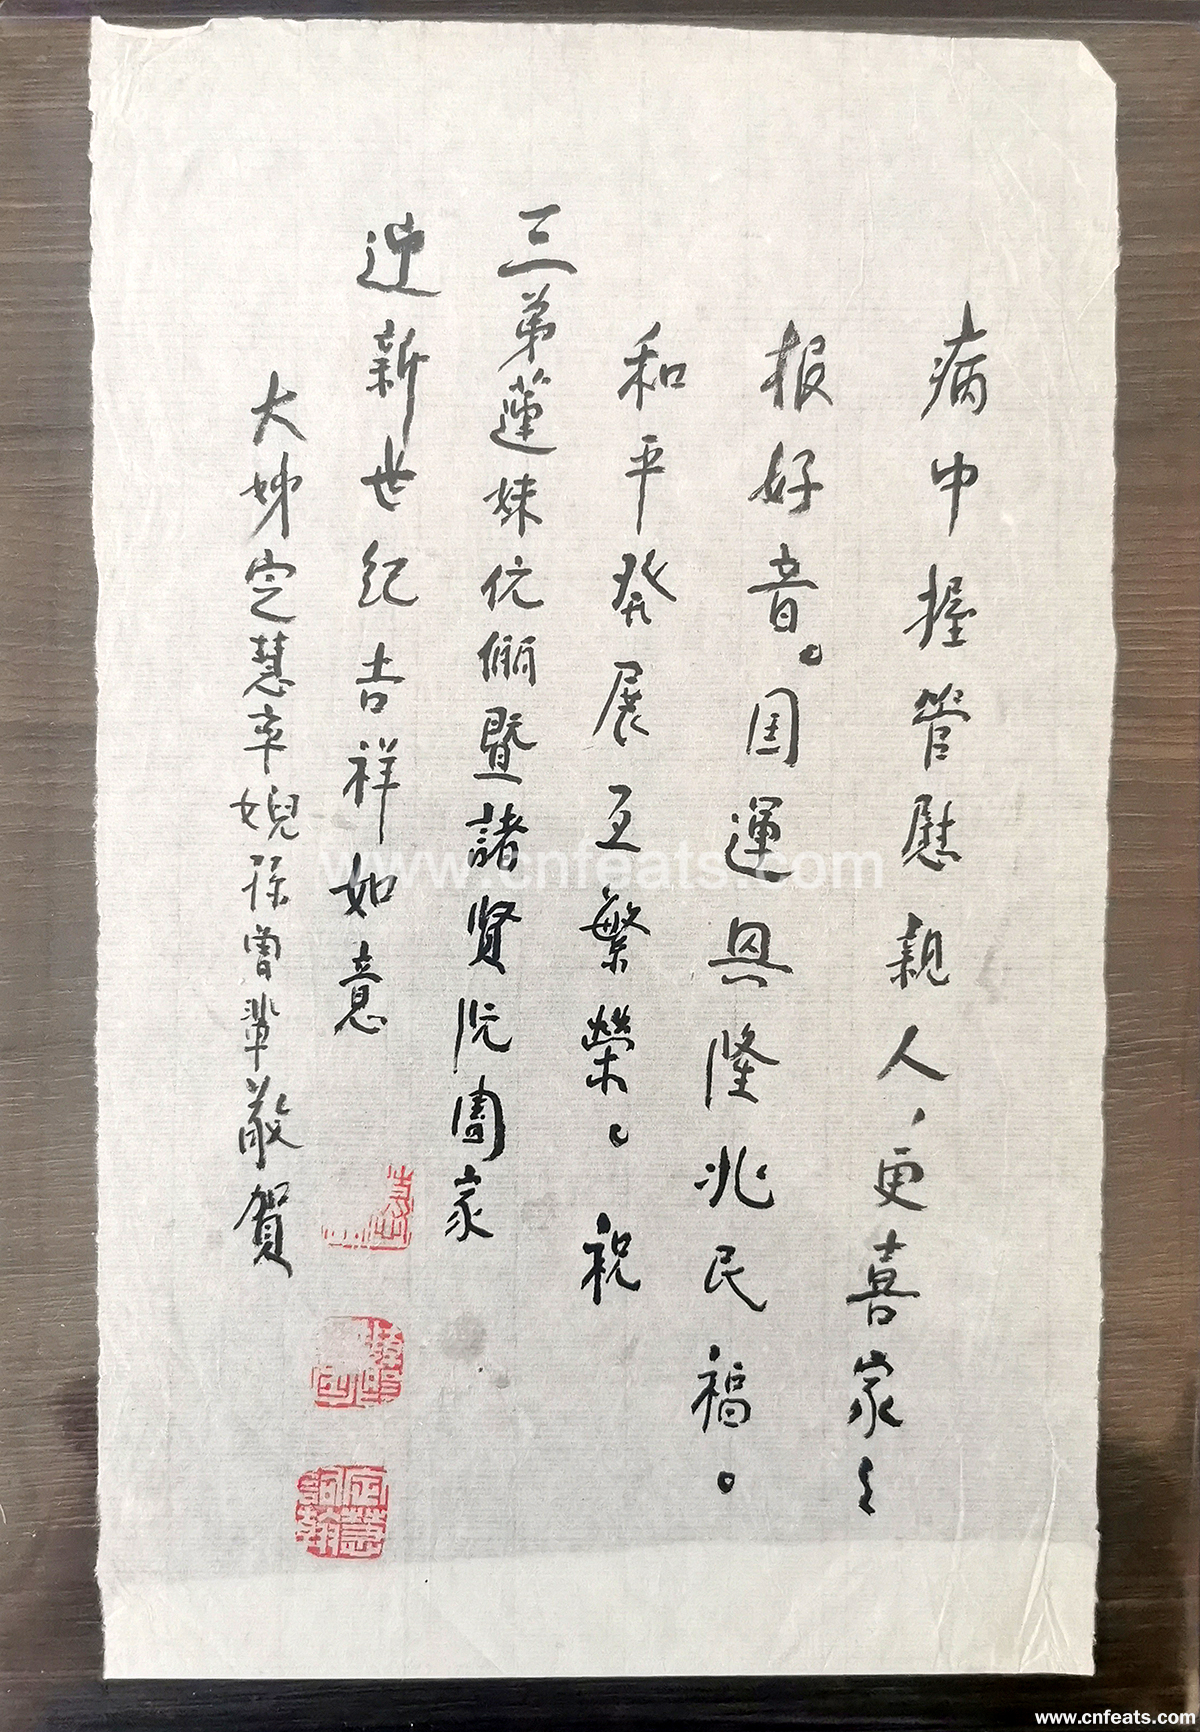 病中握管慰親人，更喜家々
报好音。国運興隆兆民福。
和平發展互繁榮。祝
三弟蓮妹伉儷暨諸賢阮闔家
迎新世紀吉祥如意
大姊定慧率婗孫曾輩敬賀
定慧詞翰
www.cnfeats.com
www.cnfeats.com